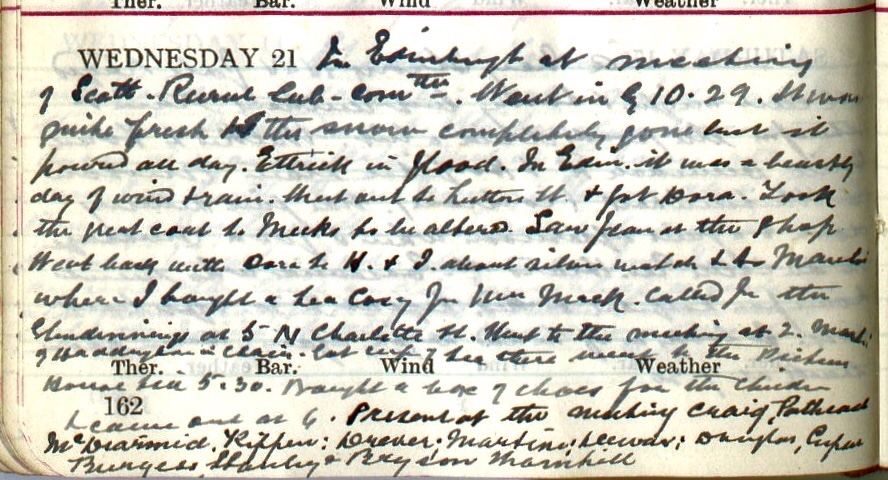 Ther. Bar. Wind Weather
WEDNESDAY 21 In Edinburgh at meeting
of Scott. Rural Sub-Comtte. Went in by 10.29. It was
quite fresh & the snow completely gone but it
poured all day. Ettrick in flood. In Edin. it was a beastly
day of wind & rain. Went out to Hutton St. & got Dora. Took
the great coat to Meeks to be altered. Saw Jean at the shop
Went back with Dora to H. & I. about silver watch & to
where I bought a tea cosy for Mrs Mack. Called for the
Clendinnings at 5 N Charlotte St. Went to the meeting at 2.
of Haddington in Chair. Got cup of tea there went to the
House till 5.30. Bought a box of chocs for the
Ther. Bar. Wind Weather
162
& came out at 6. Present at the meeting Craig, Pathhead
McDiarmid, Kippen; Drever; Martin; Dewar; Douglas, Cupar
Burgess, Stanley & Bryson Thornhill